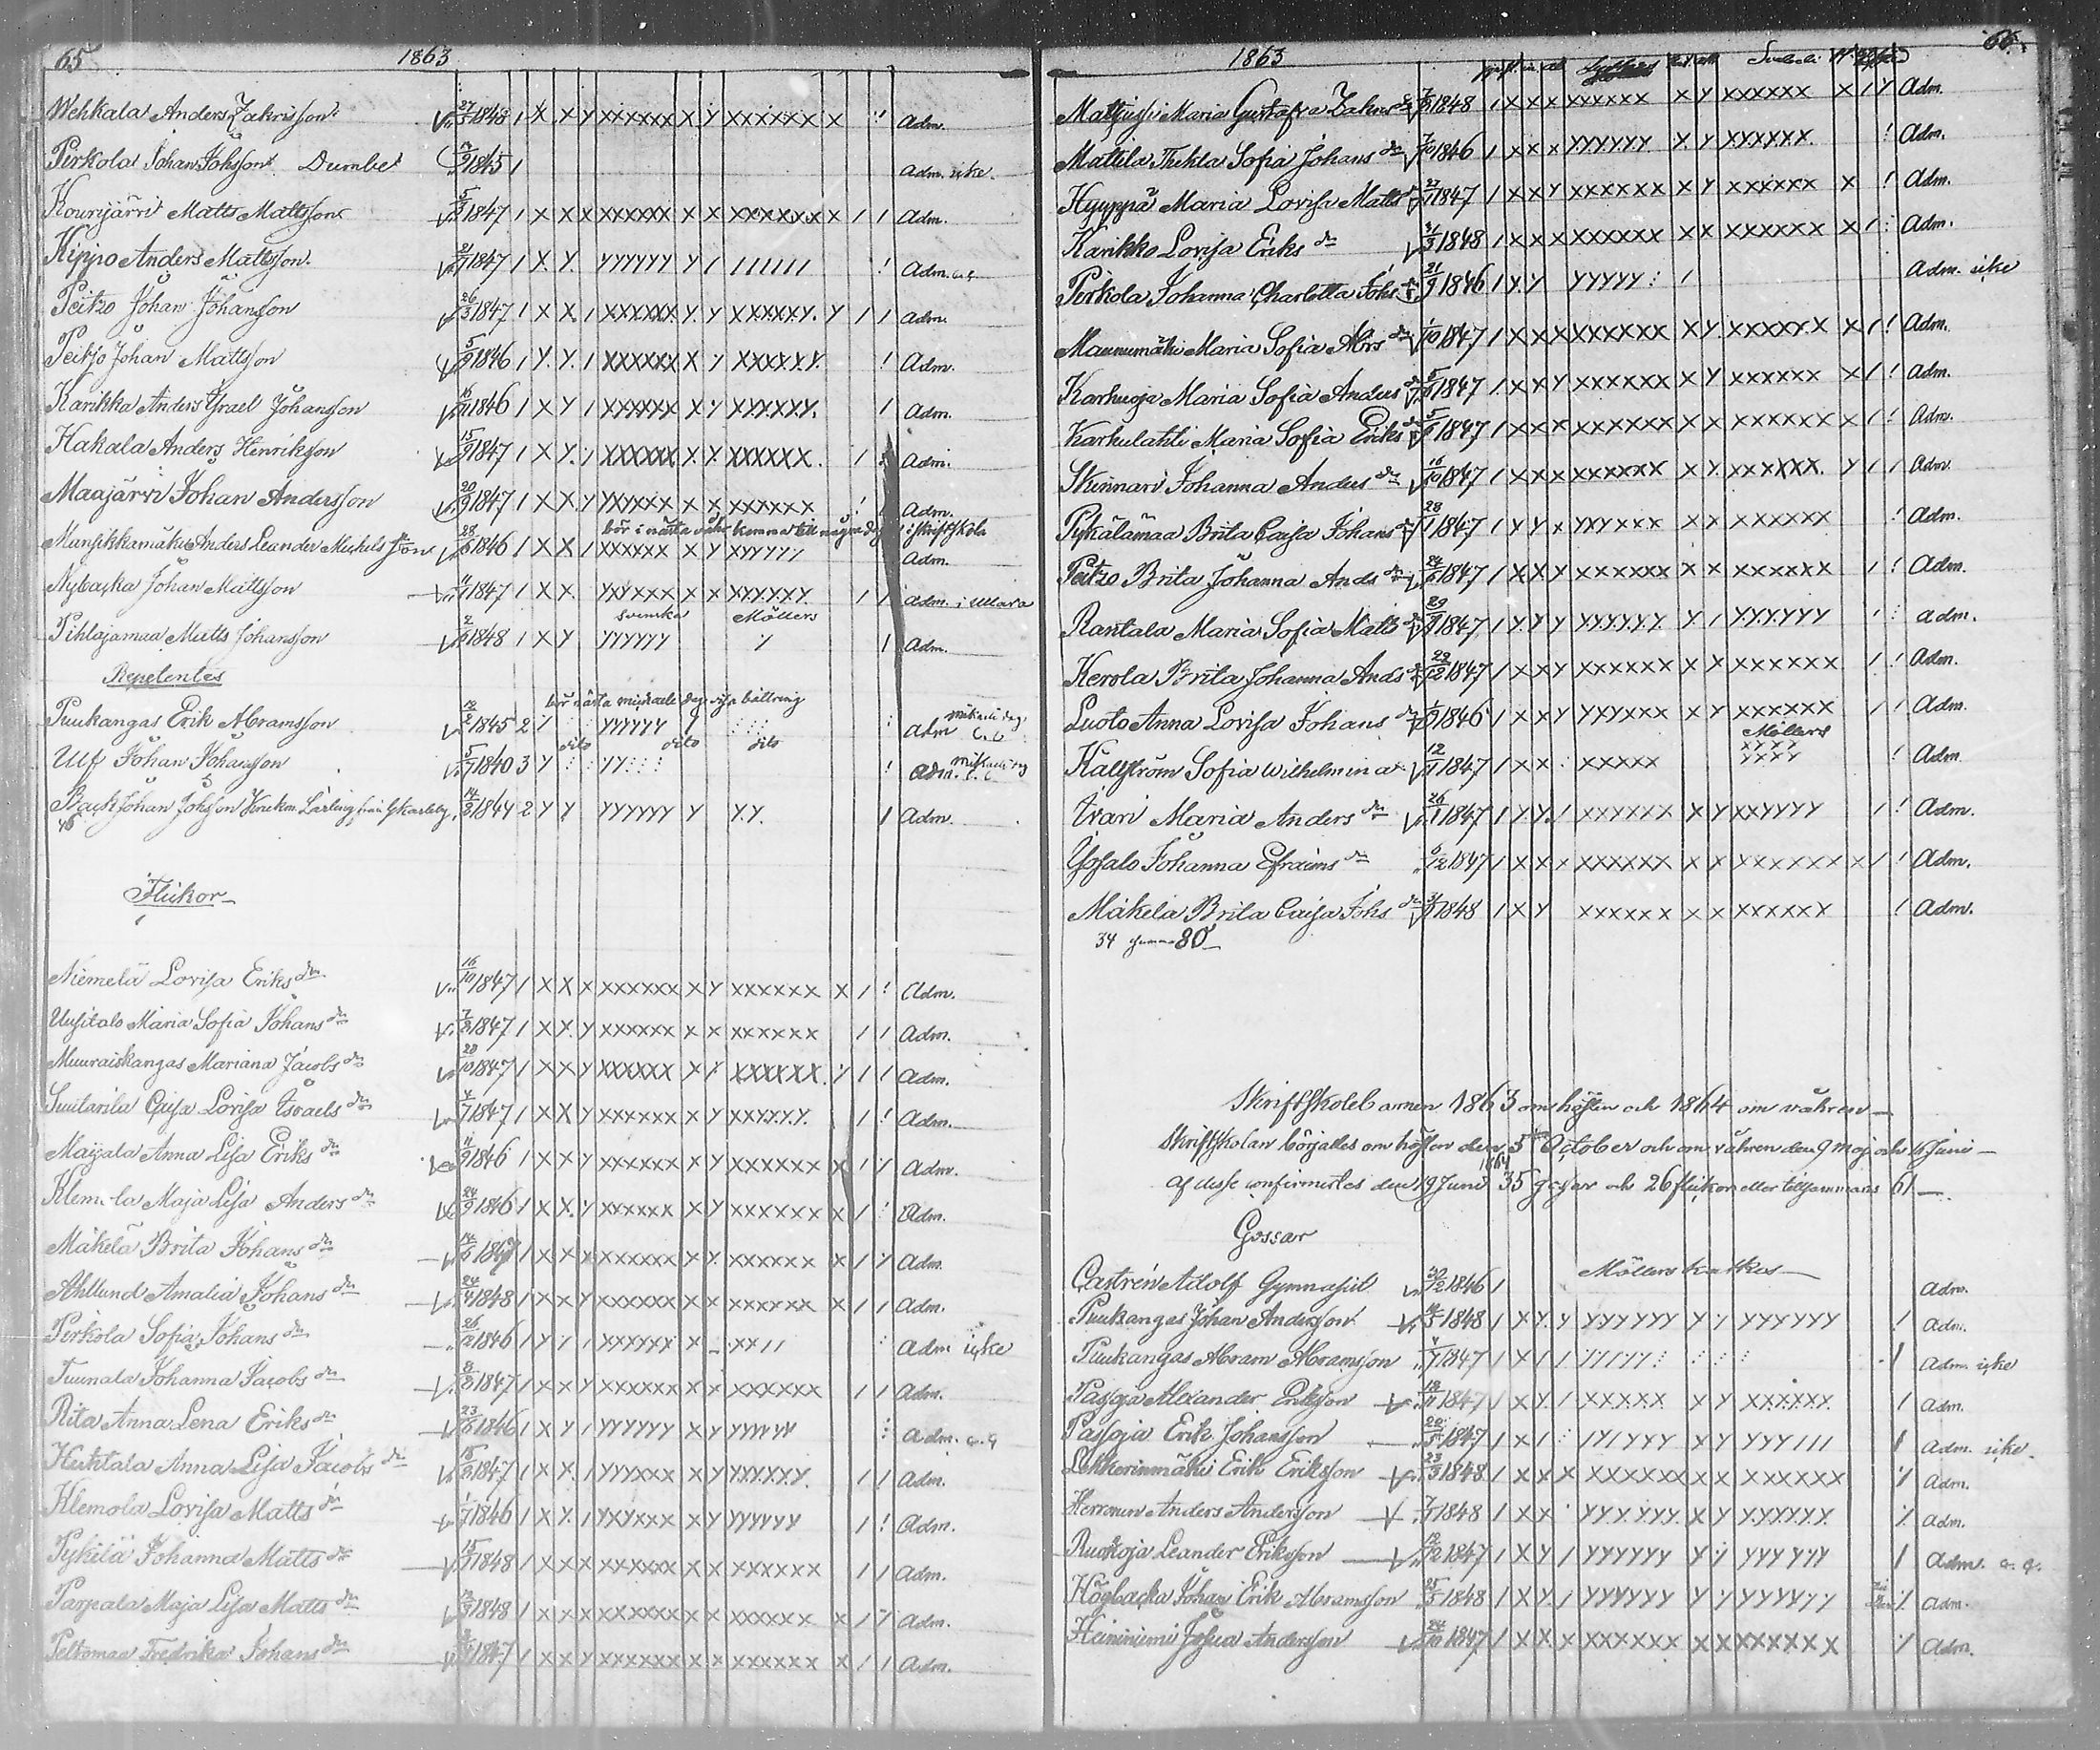 65 1863
Wehkala Anders Zakrisson 27/3 1848 1 X X Y XXXXXX X Y XXXXXX X Adm.
Perkola Johan Johsson Dumbet 1845 1 Adm. icke.
Kourijärvi Matts Mattsson 1847 1 X X X XXXXXX X X XXXXXX X 1 1 Adm.
Kippo Anders Mattsson 1847 1 X Y. YYYYYY Y 1 111111 ! Adm.
Peitzo Johan Johansson 26/3 1847 1 X X 1 XXXXXX Y Y XXXXXY. Y 1 1 Adm.
Peitzo Johan Mattsson 5/9 1846 1 Y. Y. 1 XXXXXX X Y XXXXYY. ! Adm.
Karikka Anders Israel Johansson 16/11 1846 1 X Y 1 XXXXXX X Y XXYXXY. ! Adm.
Hakala Anders Henriksson 15/9 1847 1 X Y. 1 XXXXXX X X XXXXXX. 1 Adm.
Maajärvi Johan Andersson 20/9 1847 1 X X Y YYXXXX X X XXXXXX ! Adm.
bör i nästa måste komma till några dagar i skriftskola
Mansikkamäki Anders Leander Michelsson 28/6 1846 1 X X 1 XXXXXX X Y XYYYYY Adm.
Nybacka Johan Mattsson 1847 1 X X. YXYXXX X X XYXXXY. 1 1 Adm. i Ullava
svenska Möllers
Pihlajamaa Matts Johansson 1848 1 X Y YYYYYY 1 Adm.
Repetentes
bör nästa mickaeli dag visa bättring
Puukangas Erik Abramsson 1845 2 1 YYYYYY Y Adm mikaeli dag
dito dito dito
Ulf Johan Johansson 5/7 1840 3 Y YY Adm.
Back Johan Johsson 14/2 1844 2 Y Y YYYYYY Y Y.Y. 1 Adm.
46
Flickor
Niemelä Lovisa Eriks dr 16/10 1847 1 X X X XXXXXX X Y XXXXXX X 1 ! Adm.
Uusitalo Maria Sofia Johans dr 7/2 1847 1 X X. Y XXXXXX X X XXXXXX 1 1 Adm.
Muuraiskangas Mariana Jacobs dr 20/10 1847 1 X X Y XXXXXX X Y XXXXXX. Y 1 1 Adm.
Suutarila Caisa Lovisa Israels dr 4/7 1847 1 X X Y XXXXXX X Y XXXYYY. 1 ! Adm.
Maijala Anna Lisa Eriks dr 1846 1 X X Y XXXXXX X Y XXXXXX X 1 Y Adm.
Klemola Maja Lisa Anders dr 24/9 1846 1 X X. Y XXXXXX X Y XXXXXX X 1 ! Adm.
Mäkelä Brita Johans dr 14/6 1847 1 X X X XXXXXX X Y XXXXXX X 1 Y Adm.
Ahllund Amalia Johans dr 24/4 1848 1 X X Y XXXXXX X X XXXXXX X 1 1 Adm.
Perkola Sofia Johans dr 26/12 1846 1 Y 1 1 XXXXXX X XX11 Adm icke
Tuunala Johanna Jacobs dr 8/2 1847 1 X X Y XXXXXX X X XXXXXX 1 1 Adm.
Rita Anna Lena Eriks dr 23/6 1846 1 X Y 1 YYYYYY X Y YYYYYY Adm. a.q
Huhtala Anna Lisa Jacobs dr 15/2 1847 1 X X. 1 YYYXXX X Y YYYXXY. 1 1 Adm.
Klemola Lovisa Matts dr 1/7 1846 1 X Y. 1 YXYXXX X Y YYYYYY 1 ! Adm.
Pykilä Johanna Matts dr 1848 1 X X X XXXXXX X X XXXXXX 1 1 Adm.
Parpala Maja Lisa Matts dr 1848 1 X X X XXXXXX X X XXXXXX X 1 Y Adm.
Peltomaa Fredrika Johans dr 1847 1 X X Y XXXXXX X X XXXXXX X 1 1 Adm.
1863 66.
Maria Gustafva Zakris dr 1848 1 X X X XXXXXX X Y XXXXXX X 1 Y Adm.
Mattila Thekla Sofia Johans dr 1846 1 X X X YYYYYY. X Y XXXXXX. ! Adm.
Hyyppä Maria Lovisa Matts dr 1847 1 X X Y XXXXXX X Y XXXXXX X ! Adm.
Karikko Lovisa Eriks dr 31/3 1848 1 X X X XXXXXX X X XXXXXX X 1 Adm.
Perkola Johanna Charlotta Johs dr 21/9 1846 1 Y Y YYYYY 1 Adm. icke
Maunumäki Maria Sofia Abrs dr 1/10 1847 1 X X X XXXXXX X Y. XXXXYX X 1 ! Adm.
Karhuoja Maria Sofia Anders dr 1847 1 X X Y XXXXXX X Y XXXXXX X 1 ! Adm.
Karhulahti Maria Sofia Eriks dr 1847 1 X X X XXXXXX X X XXXXXX X 1 ! Adm.
Skinnari Johanna Anders dr 16/10 1847 1 X X X XXXXXX X Y XXXXXX. Y 1 1 Adm
Pykälämaa Brita Caisa Johans dr 28/1 1847 1 Y Y X YYYXXX X X XXXXXX ! Adm.
Peitzo Brita Johanna Ands dr 1847 1 X X Y XXXXXX X X XXXXXX 1 ! Adm.
Rantala Maria Sofia Matts dr 1847 1 Y Y Y XYYYYY. Y 1 YYYYYY 1 Adm.
Kerola Brita Johanna Ands dr 29/12 1847 1 X X Y XXXXXX X Y XXXXXX 1 ! Adm.
Luoto Anna Lovisa Johans dr 1846 1 X X Y YYYXXX X Y XXXXXX 1 1 Adm.
Möllers
Källström Sofia Wilhelmina 1847 1 X X XXXXX XYYY ! Adm.
Ivari Maria Anders dr 26/1 1847 1 Y Y. 1 XXYYXX X Y XXYYYY 1 ! Adm.
Johanna Efraims dr 6/12 1847 1 X X X XXXXXX X X XXXXXX X 1 ! Adm.
Mäkelä Brita Caisa Johs dr 1848 1 X Y XXXXXX X X XXXXXX ! Adm.
34 summa 80
Skriftskolebarnen 1863 om hösten och 1864 om våhren
Skriftskolan börjades om hösten den 5te October och om våhren den 9 maj och Juni
af desse confirmerdes den 19 Juni 1864 35 gossar och 26 flickor eller tillsammans 61
Gossar
Castrén Adolf Gymnasist 1846 1 Möllers katkes Adm.
Puukangas Johan Andersson 1848 1 X Y. Y YYYYYY Y YYYYYY ! Adm.
Puukangas Abram Abramsson 1847 1 X 1 1 Adm. icke
Passoja Alexander Eriksson 18/11 1847 1 X Y. 1 XXXXX X Y XXXXXY. 1 Adm.
Passoja Erik Johansson 22/5 1847 1 X 1 1Y1YYY X Y YYY111 1 Adm. icke.
Lukkarinmäki Erik Eriksson 23/3 1848 1 X X X XXXXXX X X XXXXXX Y Adm.
Herronen Anders Andersson 1848 1 X X YYYYYY. X Y YYYYYY. Adm.
Ruokoja Leander Eriksson 12/12 1847 1 X Y 1 YYYYYY Y YYYYYY 1 Adm. a. q.
Högbacka Johan Erik Abramsson 25/3 1848 1 X Y 1 YYYYYY Y Y YYYYYY Adm.
Heininiemi Josua Andersson 24/10 1847 1 X X X XXXXXX X X XXXXXX Adm.